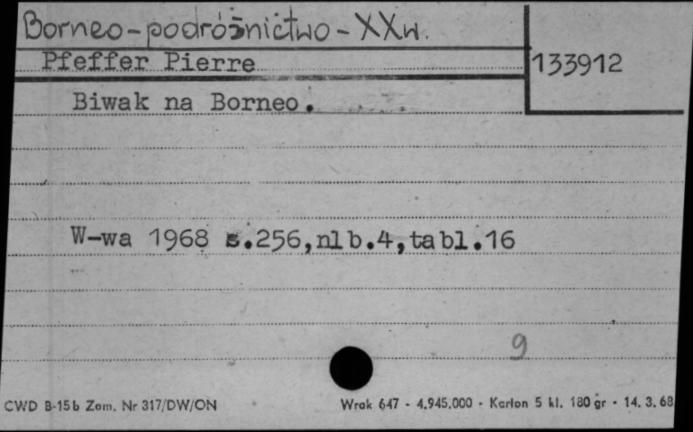 Borneo-podróżnictwo-XXw.
Pfeffer Pierre
133912
Biwak na Borneo.
W-wa 1968 s.256,nlb.4,tabl.16
9
CWD B-15b Zam. Nr 317/DW/ON
Wrak 647 - 4.945.000 - Karton 5 kl. 180 gr - 14. 3. 68